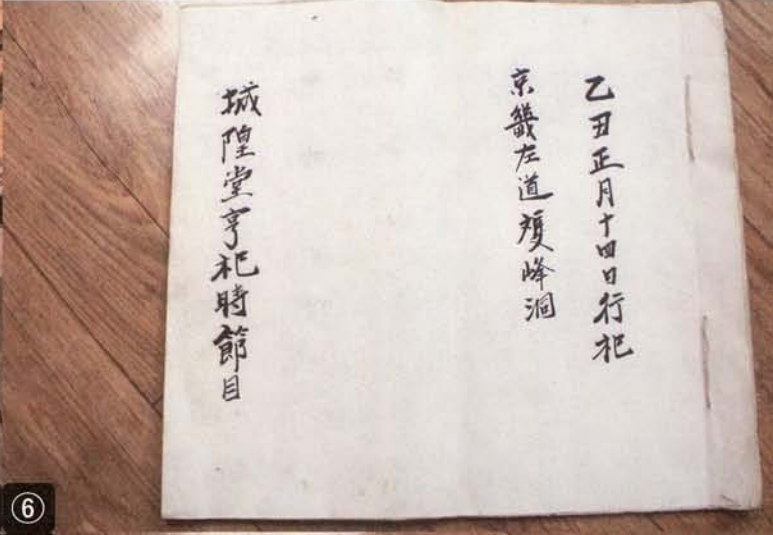 乙丑正月十四日行祀
京畿左道雙峰洞
城隍堂亨祀時節目
⑥